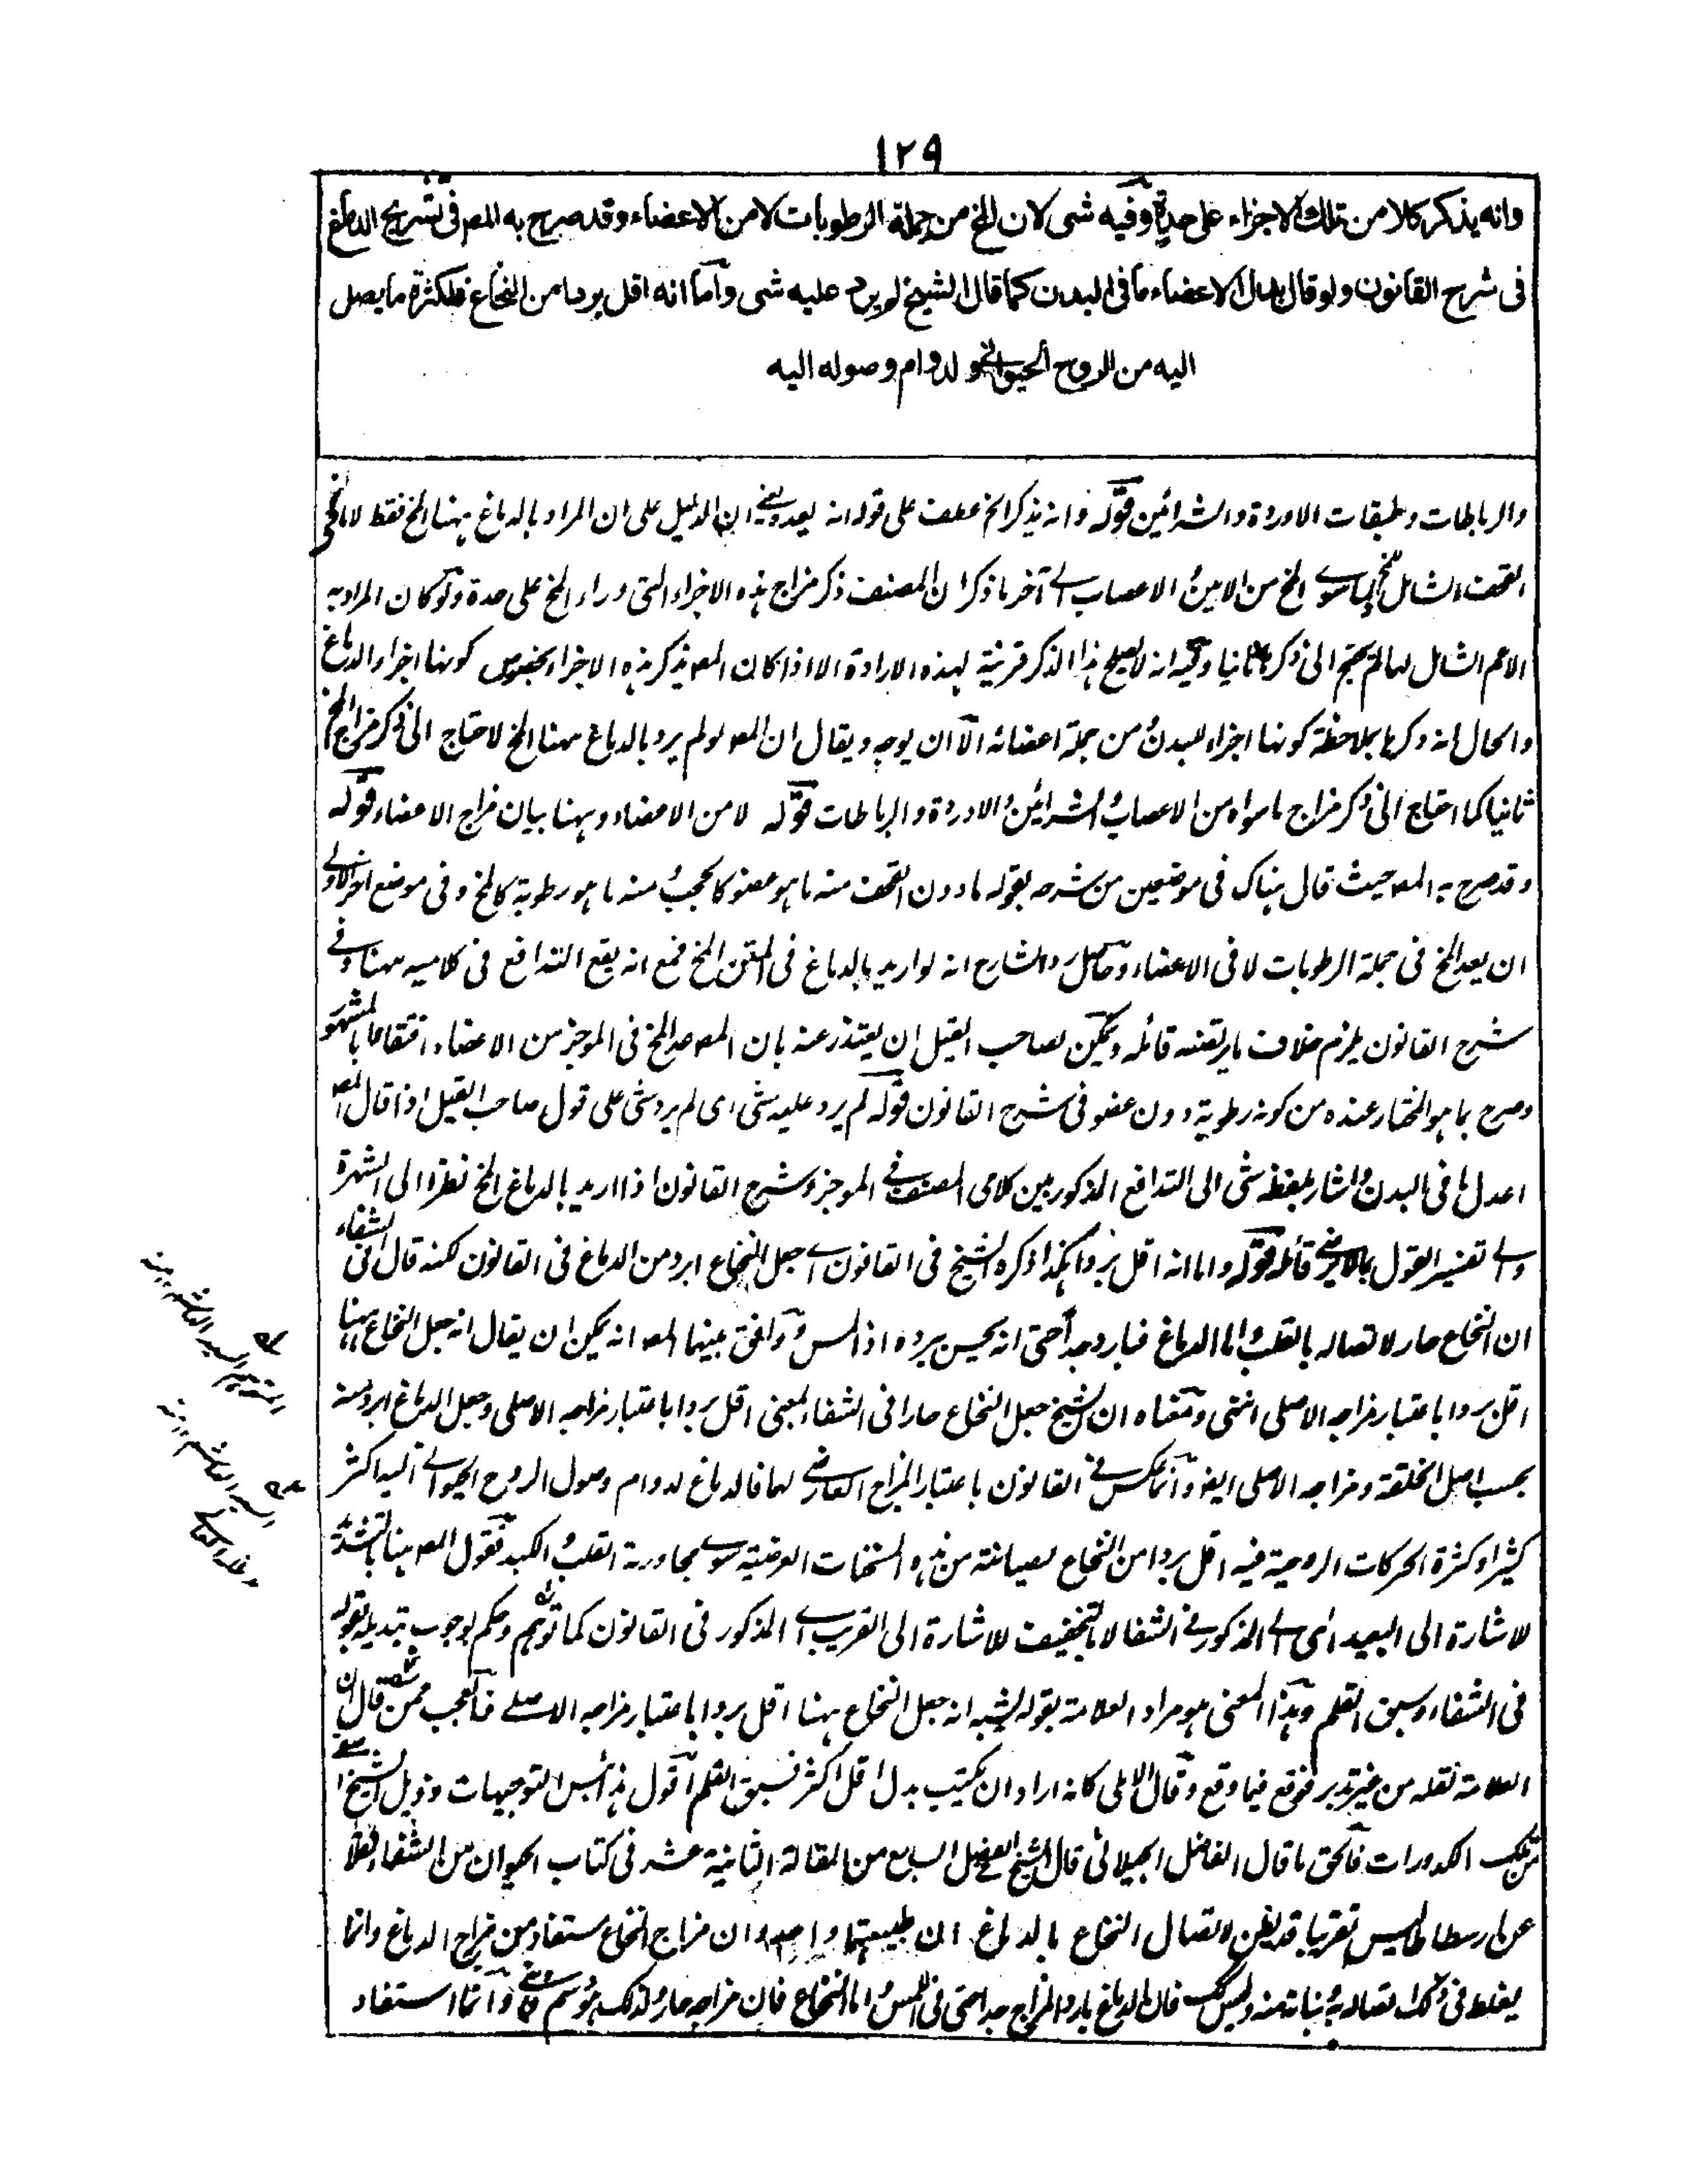 ١٢٩
وانه يذكر كلا من تلك الاجزاء على حدة وفيه شى لان المخ من جملة الرطوبات لا من الاعضاء وقد صرح به المصـ فى تشريح الدماغ
فى شرح القانون ولو قال بدل الاعضاء ما فى البدن كما قال الشيخ لم يرد عليه شى واما انه اقل بردا من النخاع فلكثرة ما يصل
اليه من الروح الحيوانى و لدوام وصوله اليه
والرباطات وطبقات الاوردة والشرائين قوله وانه يذكر الخ عطف على قوله انه يعد يعنى ان الدليل على ان المراد بالدماغ ههنا المخ فقط لا ما فى
القحف الشامل للمخ ولما سوى المخ من الامين و الاعصاب الى آخر ما ذكر ان المصنف ذكر مزاج هذه الاجزاء التى وراء المخ على حدة ولو كان المراد به
الاعم الشامل لها لم يحتج الى ذكرها ثانيا وفيه انه لا يصلح هذا الذكر قرينة لهذه الارادة الا اذا كان المصـ يذكر هذه الاجزاء بخصوص كونها اجزاء الدماغ
والحال انه ذكرها بملاحظة كونها اجزاء للبدن و من جملة اعضائه الا ان يوجه ويقال ان المصـ لو لم يرد بالدماغ ههنا المخ لاحتاج الى ذكر مزاج المخ
ثانيا كما احتاج الى ذكر مزاج ما سواه من الاعصاب و الشرائين و الاوردة والرباطات قوله لا من الاعضاء وههنا بيان مزاج الاعضاء قوله
وقد صرح به المصـ حيث قال هناك فى موضعين من شرحه بقوله ما دون القحف منه ما هو عضو كالحجب و منه ما هو رطوبة كالمخ وفى موضع اخر الاولى
ان يعد المخ فى جملة الرطوبات لا فى الاعضاء وحاصل رد الشارح انه لو اريد بالدماغ فى المتن المخ فمع انه يقع التدافع فى كلاميه ههنا وفى
شرح القانون يلزم خلاف ما يرتضيه قائله ويمكن لصاحب القيل ان يعتذر عنه بان المصـ عد المخ فى الموجز من الاعضاء اقتفاءا بالمشهور
وصرح بما هو المختار عنده من كونه رطوبة دون عضو فى شرح القانون قوله لم يرد عليه شى اى لم يرد شى على قول صاحب القيل اذا قال المصـ
اعدل ما فى البدن و اشار بلفظ شى الى التدافع المذكور بين كلامى المصنف فى الموجز وشرح القانون اذا اريد بالدماغ المخ نظرا الى الشهرة
والى تفسير القول بما لا يرضى قائله قوله واما انه اقل بردا هكذا ذكره الشيخ فى القانون اى جعل النخاع ابرد من الدماغ فى القانون لكنه قال فى الشفاء
ان النخاع حار لاتصاله بالقلب و اما الدماغ فبارد جدا حتى انه يحس ببرده اذا لمس ووافق بينهما المصـ انه يمكن ان يقال انه جعل النخاع ههنا
اقل بردا باعتبار مزاجه الاصلى انتهى ومعناه ان الشيخ جعل النخاع حارا فى الشفاء بمعنى اقل بردا باعتبار مزاجه الاصلى وجعل الدماغ ابرد منه
بحسب اصل الخلقة ومزاجه الاصلى ايضا وانما عكس فى القانون باعتبار المزاج العارضى لهما فالدماغ لدوام وصول الروح الحيوانى اليه اكثر
كثيرا و كثرة الحركات الروحية فيه اقل بردا من النخاع لصيانته من هذه المسخنات العرضية سوى مجاورة القلب و الكبد فقول المصـ ههنا بالتشديد
للاشارة الى البعيد اى الى المذكور فى الشفا لا بالتخفيف للاشارة الى القريب اى المذكور فى القانون كما توهم وحكم بوجوب تبديله بقوله
فى الشفاء وسبق القلم وهذا المعنى هو مراد العلامة بقوله يشبه انه جعل النخاع ههنا اقل بردا باعتبار مزاجه الاصلى فالعجب ممن قال ان
العلامة نقله من غير تدبر فوقع فيما وقع وقال الاملى كانه اراد ان يكتب بدل اقل اكثر فسبق القلم اقول هذا ابس التوجيهات وذيل الشيخ
من تلك الكدورات فالحق ما قال الفاضل الجيلانى قال الشيخ فى الفصل السابع من المقالة الثانية عشر فى كتاب الحيوان من الشفاء نقلا
عن ارسطاطاليس تقريبا قد يظن لاتصال النخاع بالدماغ ان طبيعتهما واحدة و ان مزاج النخاع مستفاد من مزاج الدماغ وانما
يغلط فى ذلك اتصاله به و نباته منه وليس كك فان الدماغ بارد المزاج جدا حتى فى اللمس و اما النخاع فان مزاجه حار ولذلك هو دسم وانما استفاد